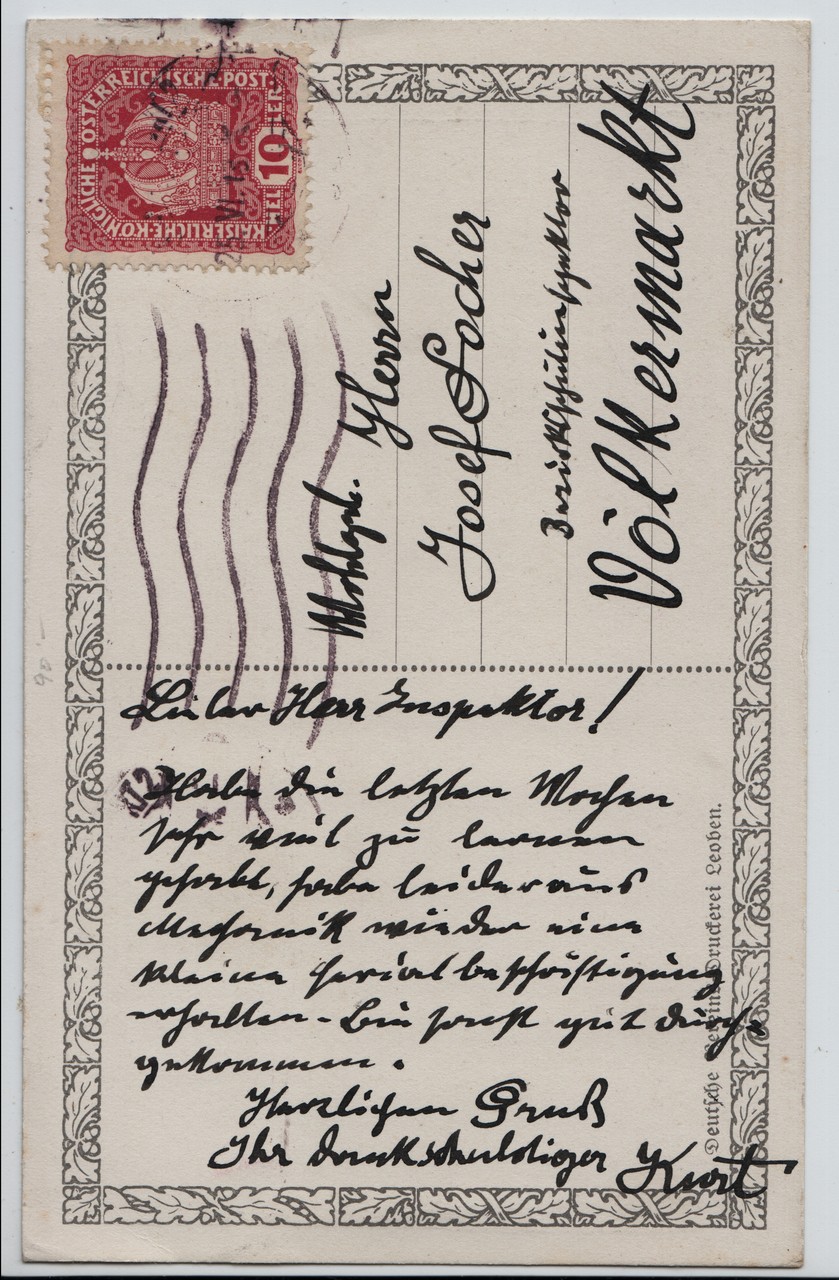 KAISERLICHE-KÖNIGLICHE ÖSTERREICHISCHE POST
10 HELLER
VI. 18
Wohlgeb. Herrn
Josef Locher
Bezirksschulinspektor
Völkermarkt
Lieber Herr Inspektor!
Habe die letzten Wochen
sehr viel zu lernen
gehabt, habe leider aus
Mechanik wieder eine
kleine Ferialbeschäftigung
erhalten - Bin sonst gut durch-
gekommen.
Herzlichen Gruß
Ihr dankschuldiger Kurt
Deutsche Vereins-Druckerei Leoben.
90.-